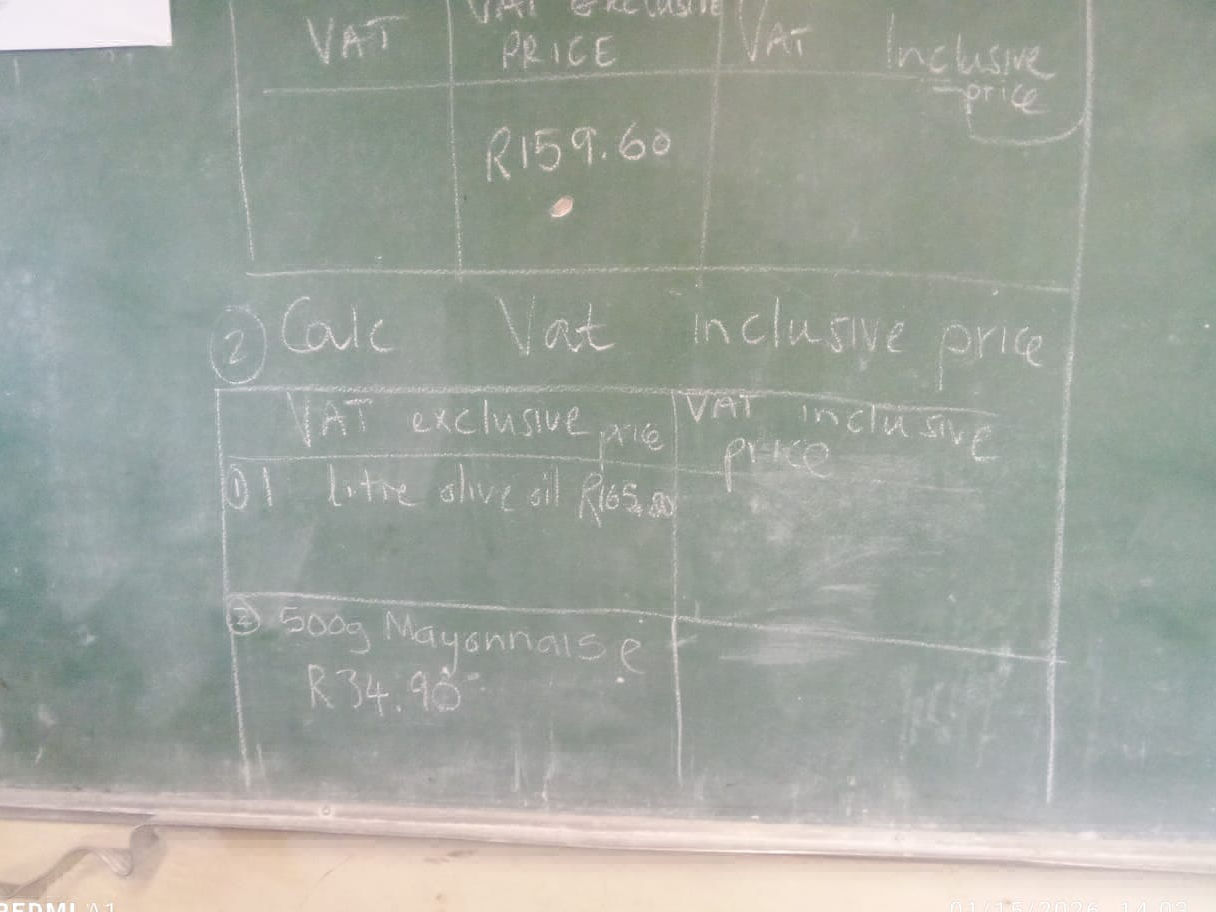 VAT
VAT exclusive
PRICE
VAT Inclusive
price
R159.60
2 Calc Vat inclusive price
VAT exclusive price
VAT inclusive
price
1 1 litre olive oil R165.00
2 500g Mayonnaise
R34.90
REDMI A1
01/15/2026 14:03